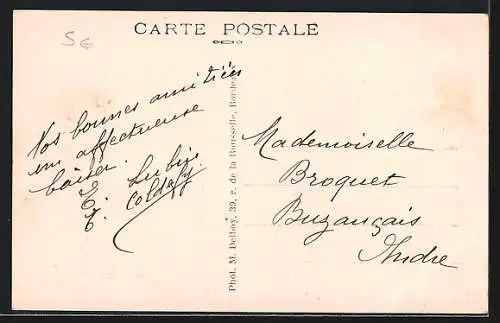 CARTE POSTALE
Nos bonnes amitiées
un affectueuse
baiser.
E.
E.
Phot. M. Delboy, 39, r. de la Rousselle, Bordeaux
Mademoiselle
Broquet
Buzançais
Indre